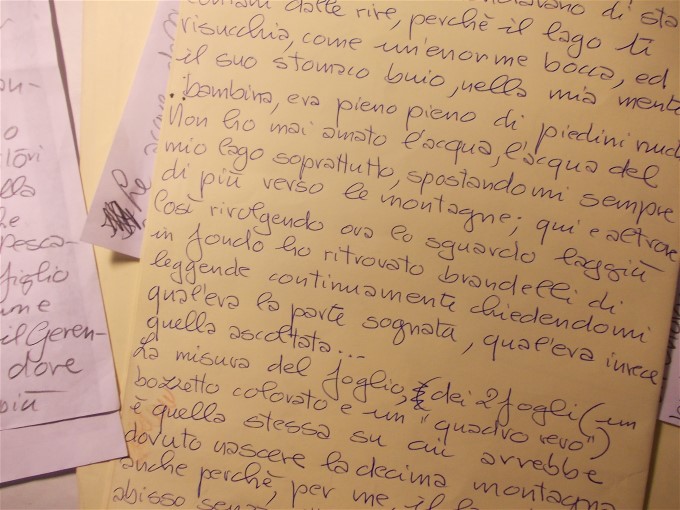 dalle rive, perchè il lago ti
risucchia, come un'enorme bocca, ed
il suo stomaco buio, nella mia mente
bambina, era pieno pieno di piedini nudi
Non ho mai amato l'acqua, l'acqua del
mio lago soprattutto, spostandomi sempre
di più verso le montagne; qui e altrove
Così rivolgendo ora lo sguardo laggiù
in fondo ho ritrovato brandelli di
leggende continuamente chiedendomi
qual'era la parte sognata, qual'era invece
quella ascoltata...
La misura del foglio, dei 2 fogli (un
bozzetto colorato e un "quadro vero")
è quella stessa su cui avrebbe
dovuto nascere la decima montagna
anche perchè, per me, il
abisso
o
lla
he
pesca-
figlio
il Geren-
dove
più
Le